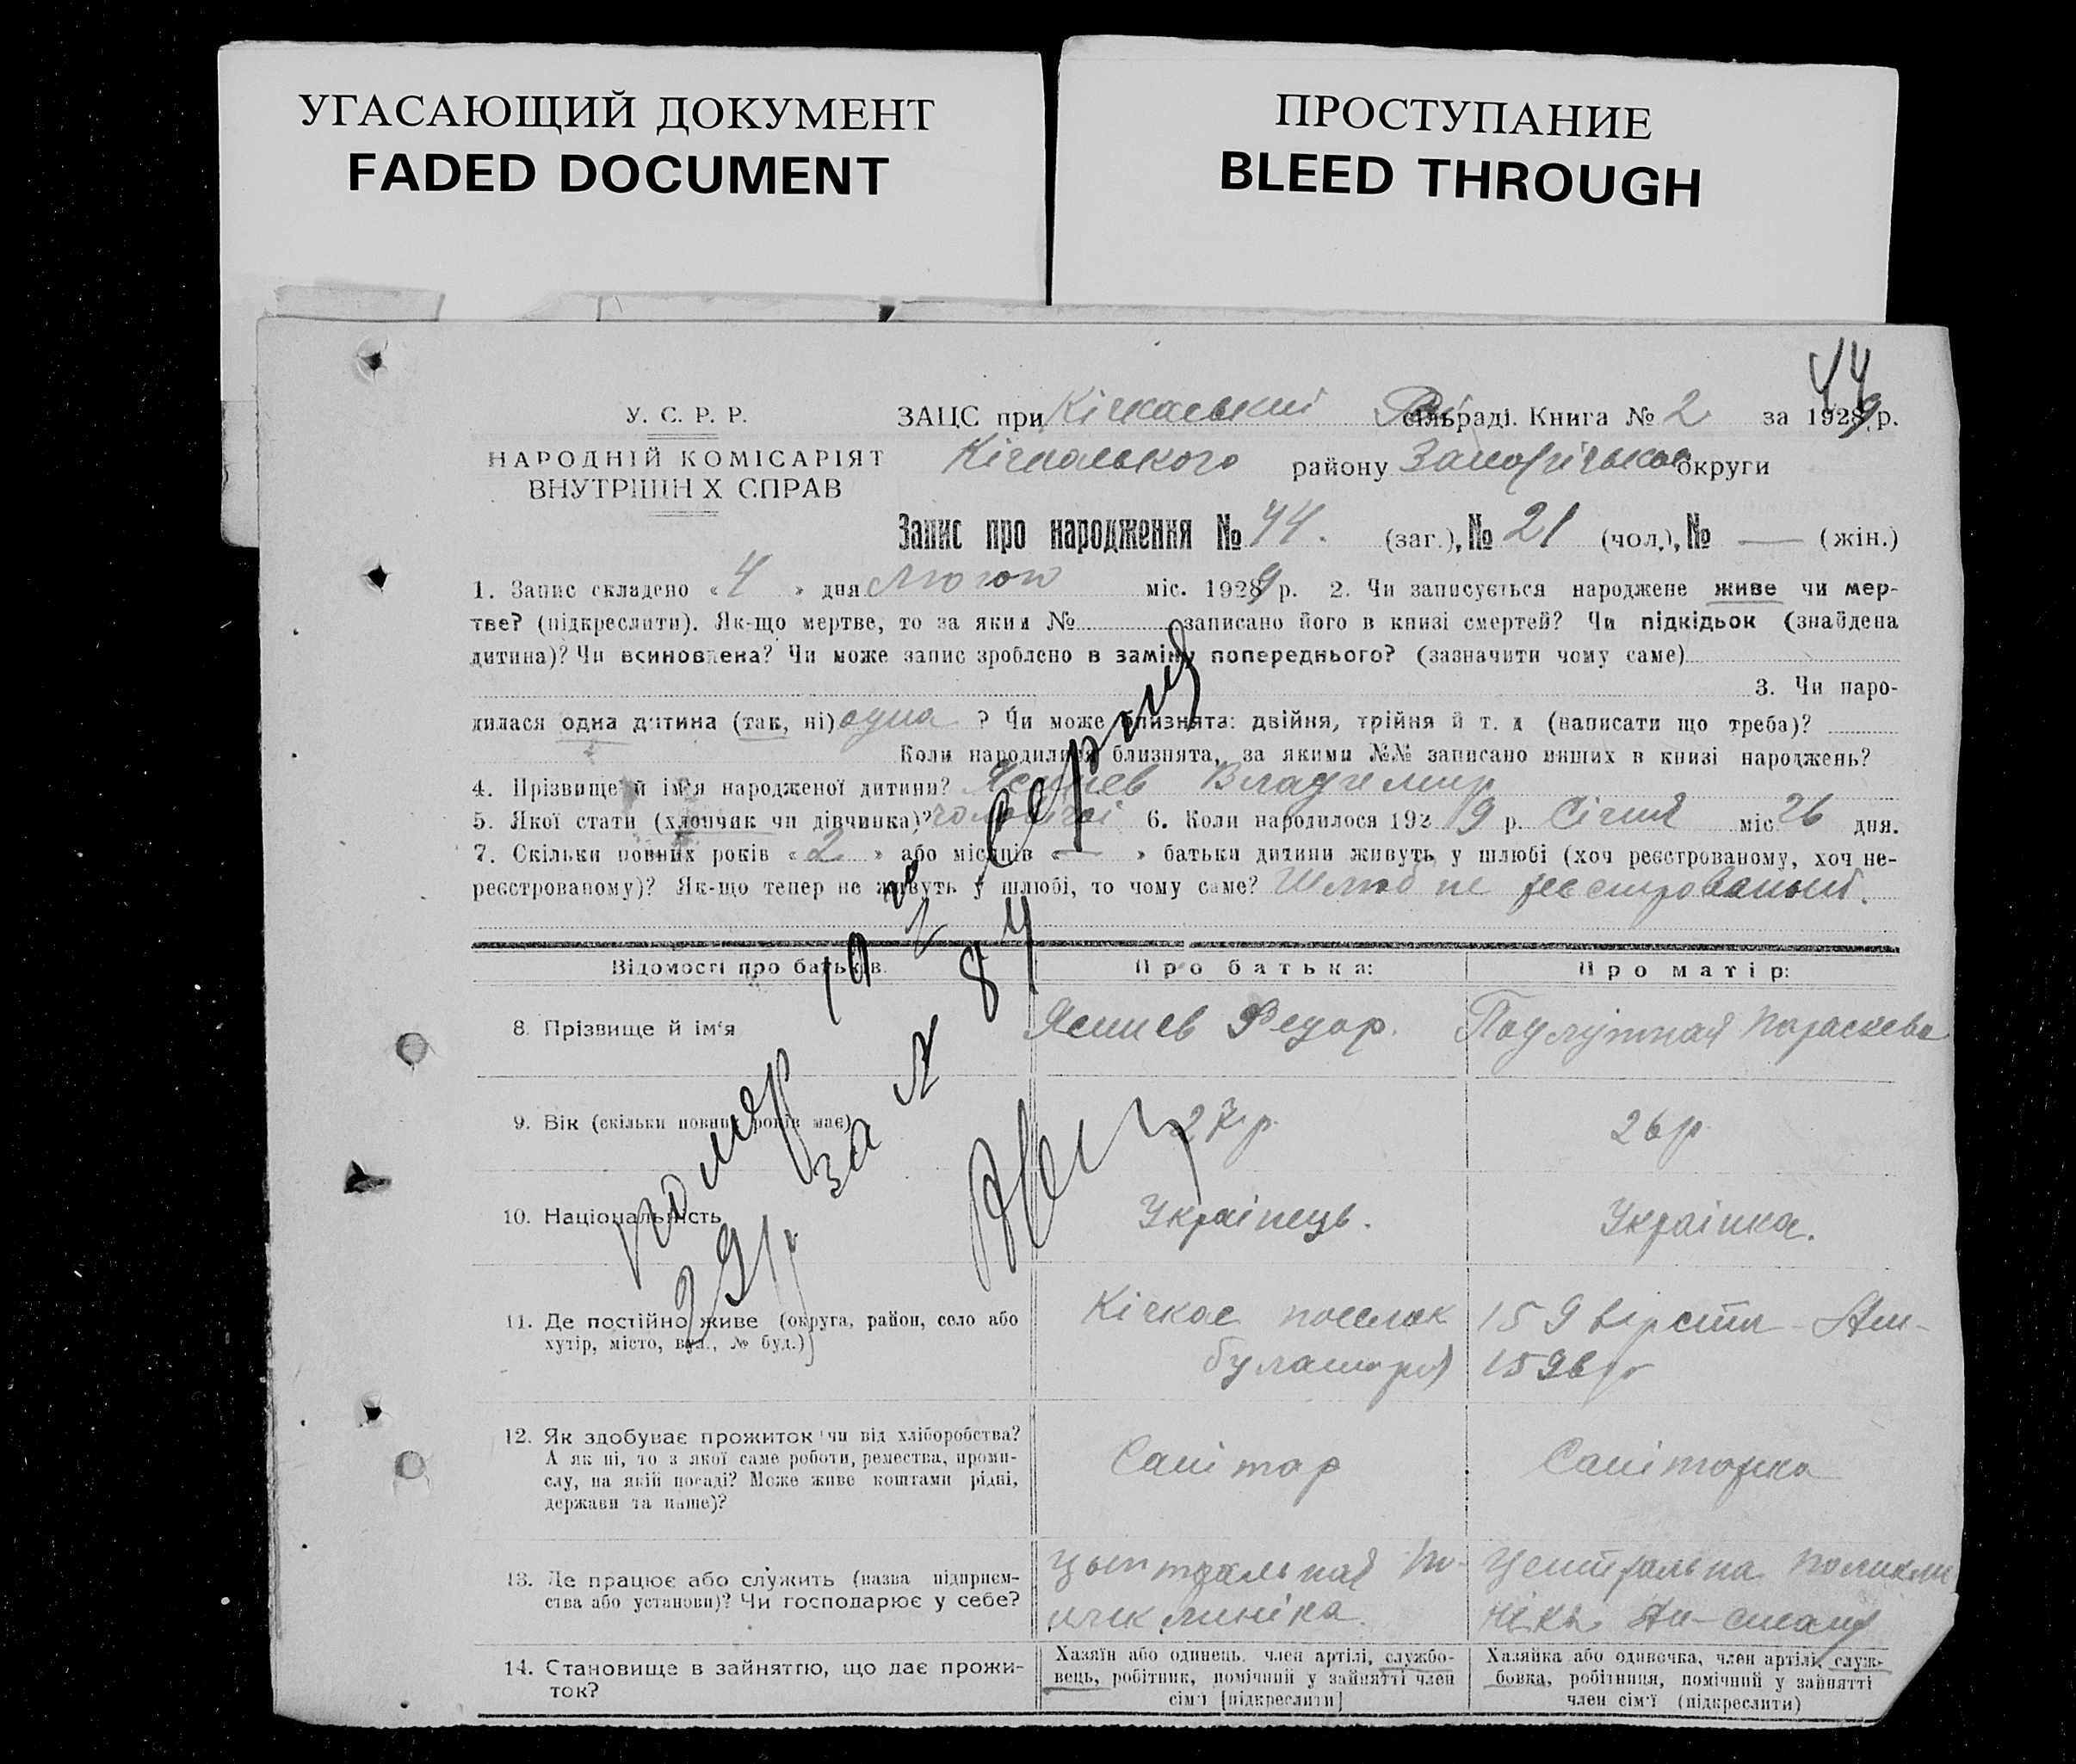 УГАСАЮЩИЙ ДОКУМЕНТ
FADED DOCUMENT
ПРОСТУПАНИЕ
BLEED THROUGH
44
У. С. Р. Р.
НАРОДНІЙ КОМІСАРІЯТ
ВНУТРІШНІХ СПРАВ
ЗАЦС при Кічкаський сільраді. Книга № 2 за 1929 р.
Кічкаського району Запорізької округи
Запис про народження № 44. (заг.), № 21 (чол.), № — (жін.)
1. Запис складено «4» дня Лютого міс. 1929 р. 2. Чи записується народжене живе чи мер-
тве? (підкреслити). Як-що мертве, то за яким № записано його в книзі смертей? Чи підкідьок (знайдена
дитина)? Чи всиновлена? Чи може запис зроблено в заміну попереднього? (зазначити чому саме)
3. Чи наро-
дилася одна дитина (так, ні) одна ? Чи може близнята: двійня, трійня й т. д (написати що треба)?
Коли народилися близнята, за якими №№ записано инших в книзі народжень?
4. Прізвище й ім'я народженої дитини? Владимир
5. Якої стати (хлопчик чи дівчинка)? чоловічої 6. Коли народилося 1929 р. Січня міс 26 дня.
7. Скільки повних років «2» або місяців «—» батьки дитини живуть у шлюбі (хоч реєстрованому, хоч не-
реєстрованому)? Як-що тепер не живуть у шлюбі, то чому саме? Шлюб не реєстрований.
Відомості про батьків.
Про батька:
Про матір:
8. Прізвище й ім'я
Федор.
Параскева
9. Вік (скільки повних років має)
27 р.
26 р.
10. Національність
Українець.
Українка.
11. Де постійно живе (округа, район, село або
хутір, місто, вул., № буд.)
Кічкас поселок
159 верста
12. Як здобуває прожиток чи від хліборобства?
А як ні, то з якої саме роботи, ремества, проми-
слу, на якій посаді? Може живе коштами рідні,
держави та инше)?
Санітар
Санітарка
13. Де працює або служить (назва підприєм-
ства або установи)? Чи господарює у себе?
Центральна поликли
14. Становище в зайняттю, що дає прожи-
ток?
Хазяїн або одинець, член артілі, службо-
вець, робітник, помічний у зайнятті член
сім'ї [підкреслити]
Хазяйка або одиночка, член артілі, служ-
бовка, робітниця, помічний у зайнятті
член сім'ї (підкреслити)
помер 19 серпня
29 р за № 84